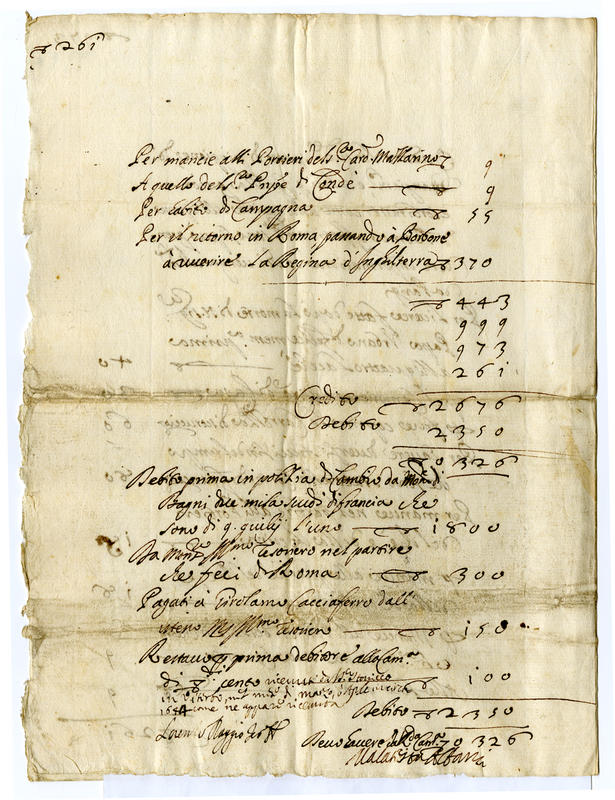 261
Per mancie alli Portieri del S.r Card. Mazzarino 9
A quello del S.r Prñpe di Condè 9
Per habito di Campagna 55
Per il ritorno in Roma passando à Borbone
à riverire La Regina d'Inghilterra 370
443
999
973
261
Credito 2676
Debito 2350
0326
Debito prima in poliza di Cambio da Mons.r
Bagni due mila scudi di francia che
sono di 9. giulij l'uno 1800
Da Mons.r Ill.mo Tesoriero nel partire
che feci di Roma 300
Pagati à Girolamo Cacciaferro dall'
istesso Mons. Ill.mo Tesoriero 150
Restavo prima debitore alla Cam.a
di cento ricevuti 100
in Viterbo nel mese di marzo, Aprile
1644 come ne appare ricevuta
Debito 2350
Lorenzo Maggio
Devo havere dalla Cam.a 0326